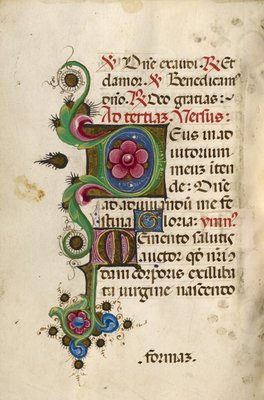 ℣ Dñe exaudi. ℟ Et
clamor. ℣ Benedicam
dño. ℟ Deo gratias:
Ad tertiaz. Versus:
DEus in ad
iutorium
meuz inten
de: Dñe
ad adiuuandū me fe
stina Gloria: ymnꝰ
Memento salutis
auctor qđ nr̄i
dam corporis ex illiba
ta uirgine nascendo
formaz.